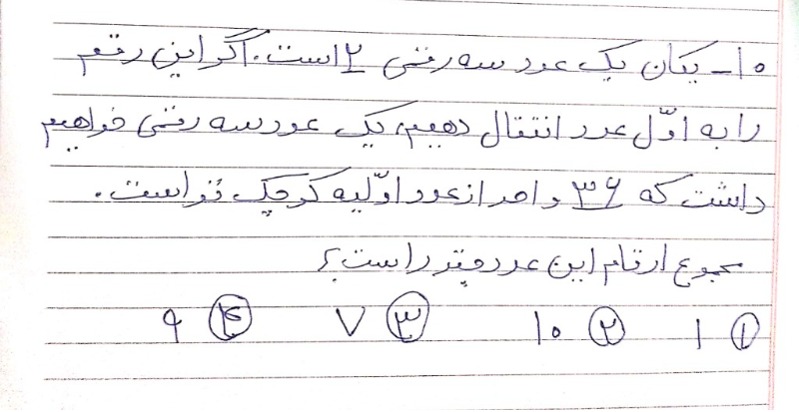 ۱۰- یکان یک عدد سه رقمی ۲ است. اگر این رقم
را به اوّل عدد انتقال دهیم، یک عدد سه رقمی خواهیم
داشت که ۳۶ واحد از عدد اوّلیه کوچک تر است.
مجموع ارقام این عدد چقدر است؟
۱) ۱ ۲) ۱۰ ۳) ۷ ۴) ۹